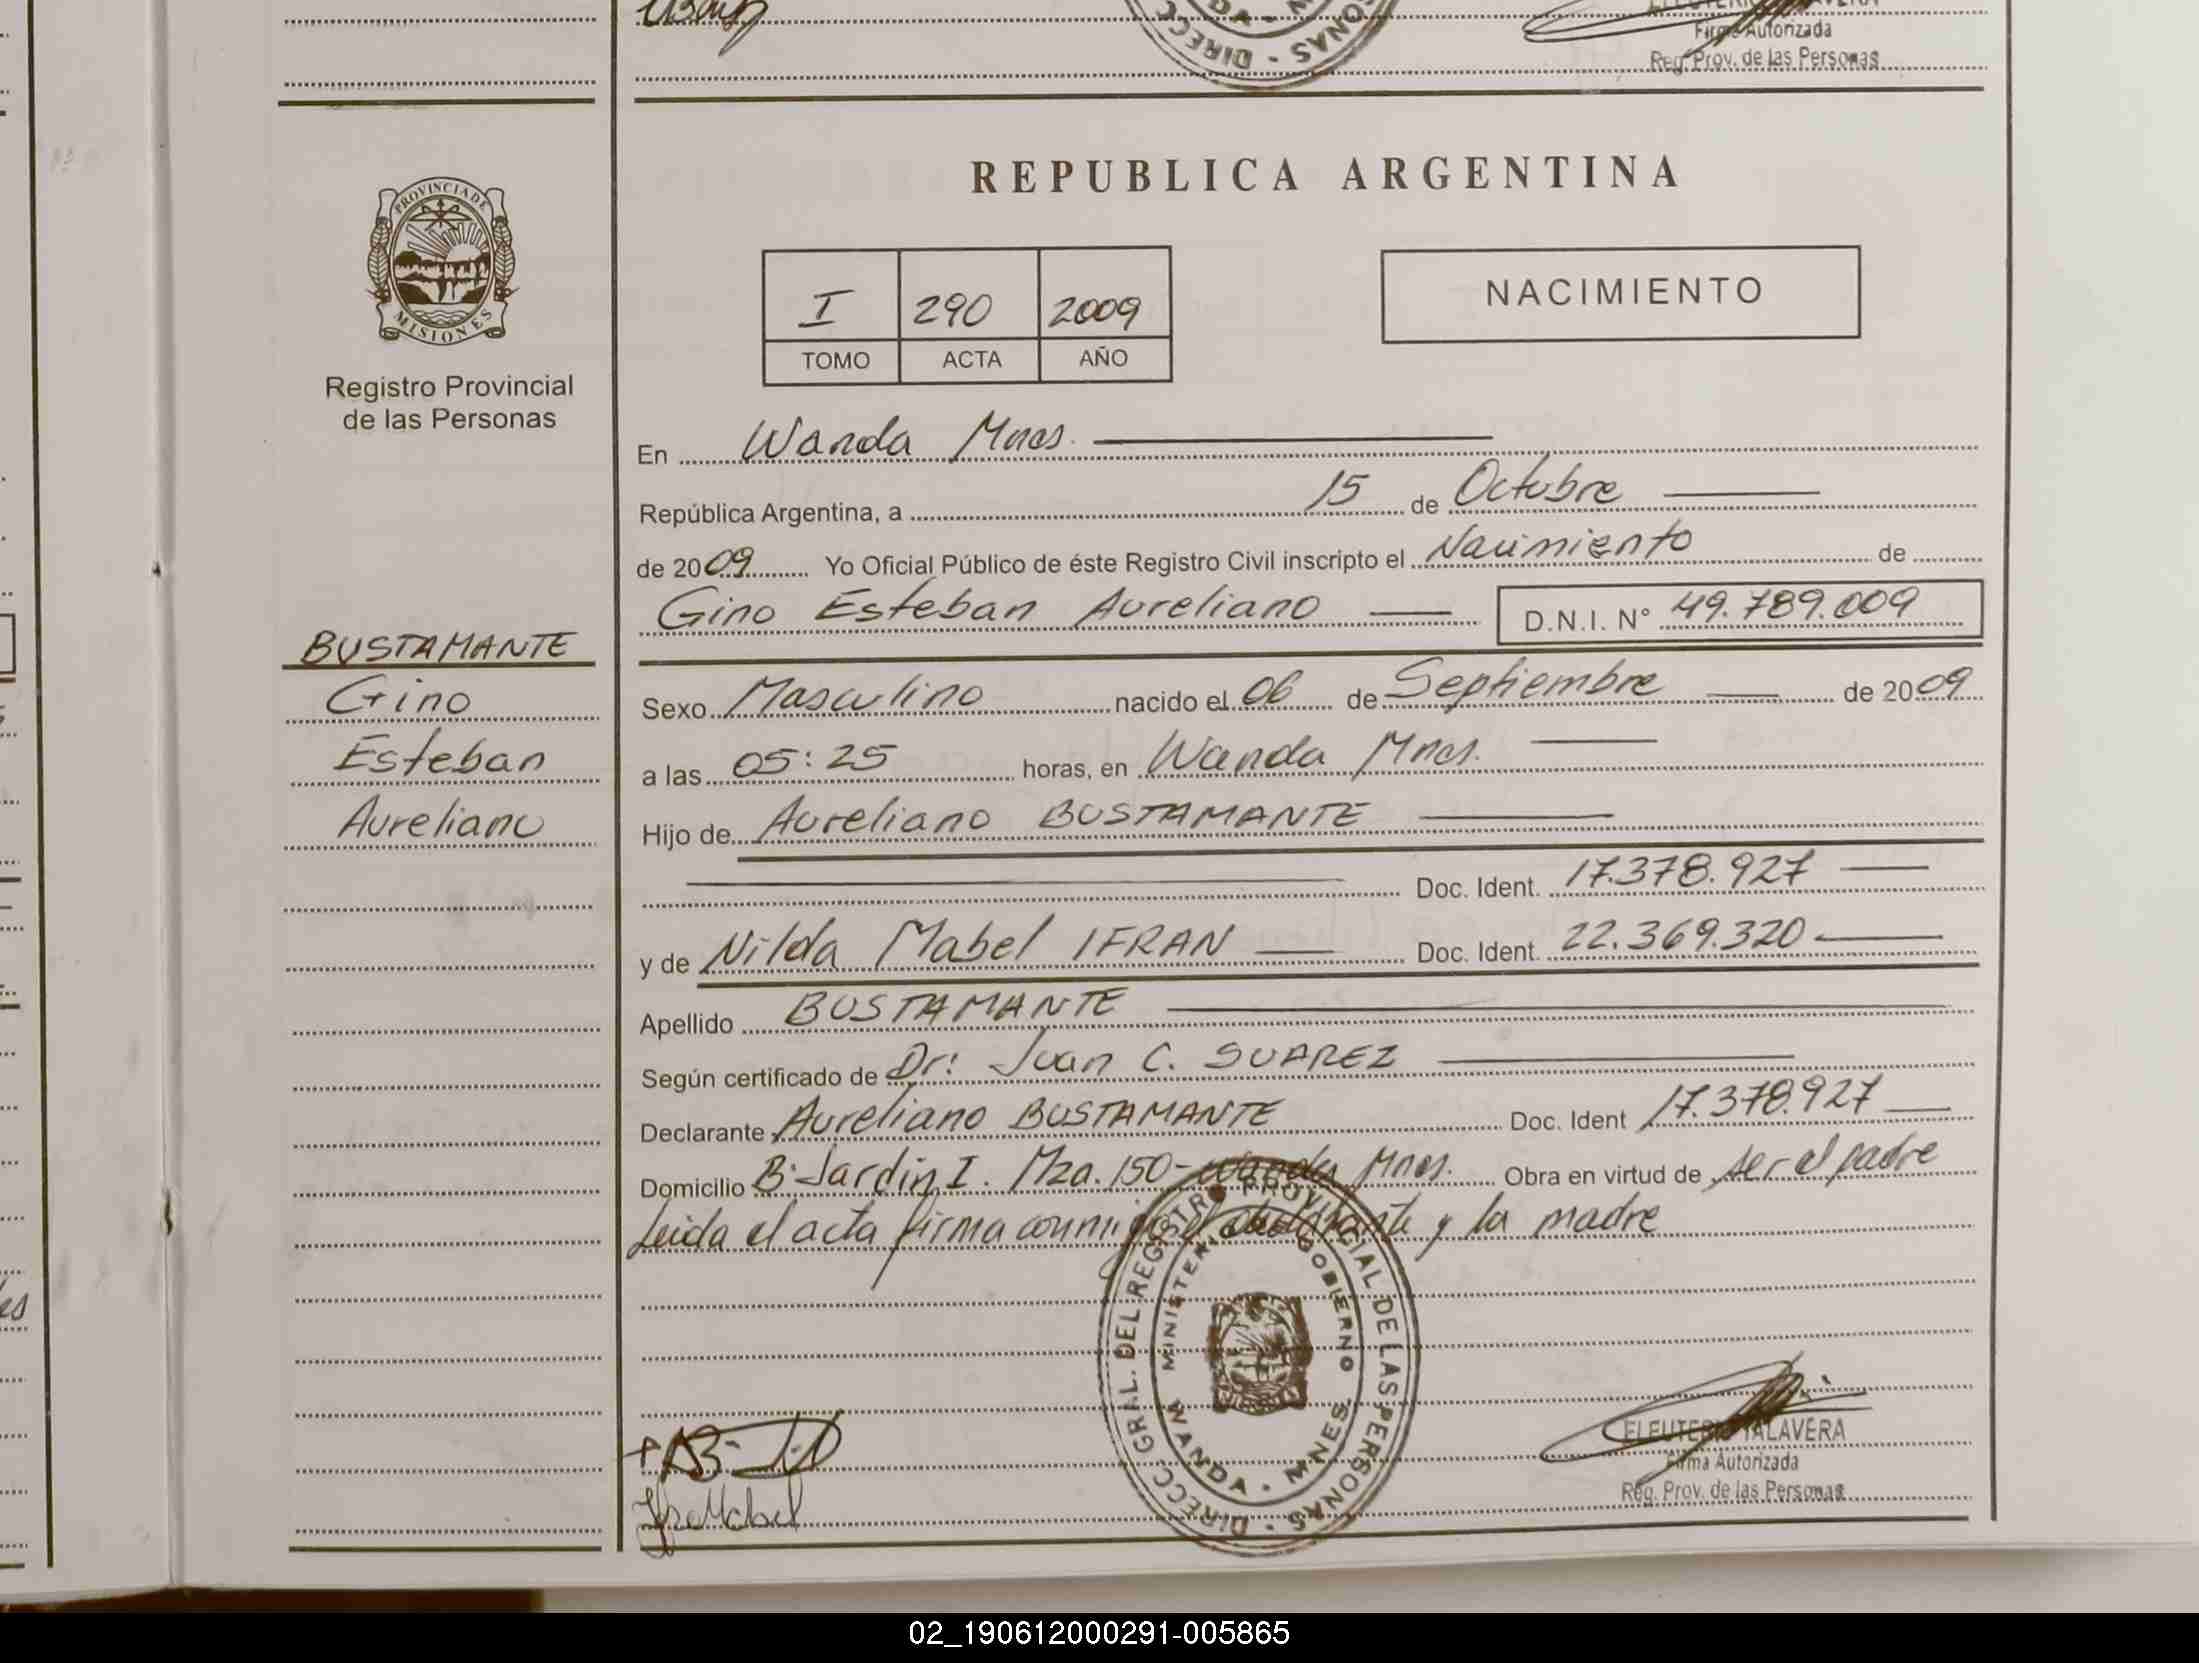 Firma Autorizada
Reg. Prov. de las Personas
PROVINCIA DE
MISIONES
Registro Provincial
de las Personas
BUSTAMANTE
Gino
Esteban
Aureliano
REPUBLICA ARGENTINA
I 290 2009
TOMO ACTA AÑO
NACIMIENTO
En Wanda Mnes.
República Argentina, a 15 de Octubre
de 2009 Yo Oficial Público de éste Registro Civil inscripto el Nacimiento de
Gino Esteban Aureliano D.N.I. N° 49.789.009
Sexo Masculino nacido el 06 de Septiembre de 2009
a las 05:25 horas, en Wanda Mnes.
Hijo de Aureliano BUSTAMANTE
Doc. Ident. 17.378.927
y de Nilda Mabel IFRAN Doc. Ident. 22.369.320
Apellido BUSTAMANTE
Según certificado de Dr: Juan C. SUAREZ
Declarante Aureliano BUSTAMANTE Doc. Ident 17.378.927
Domicilio B: Jardin I. Mza. 150 - Wanda Mnes. Obra en virtud de ser el padre
Leida el acta firma conmigo el declarante y la madre
DIRECC. GRAL. DEL REGISTRO PROVINCIAL DE LAS PERSONAS
MINISTERIO GOBIERNO
WANDA - MNES
ELEUTERIO TALAVERA
Firma Autorizada
Reg. Prov. de las Personas
02_190612000291-005865